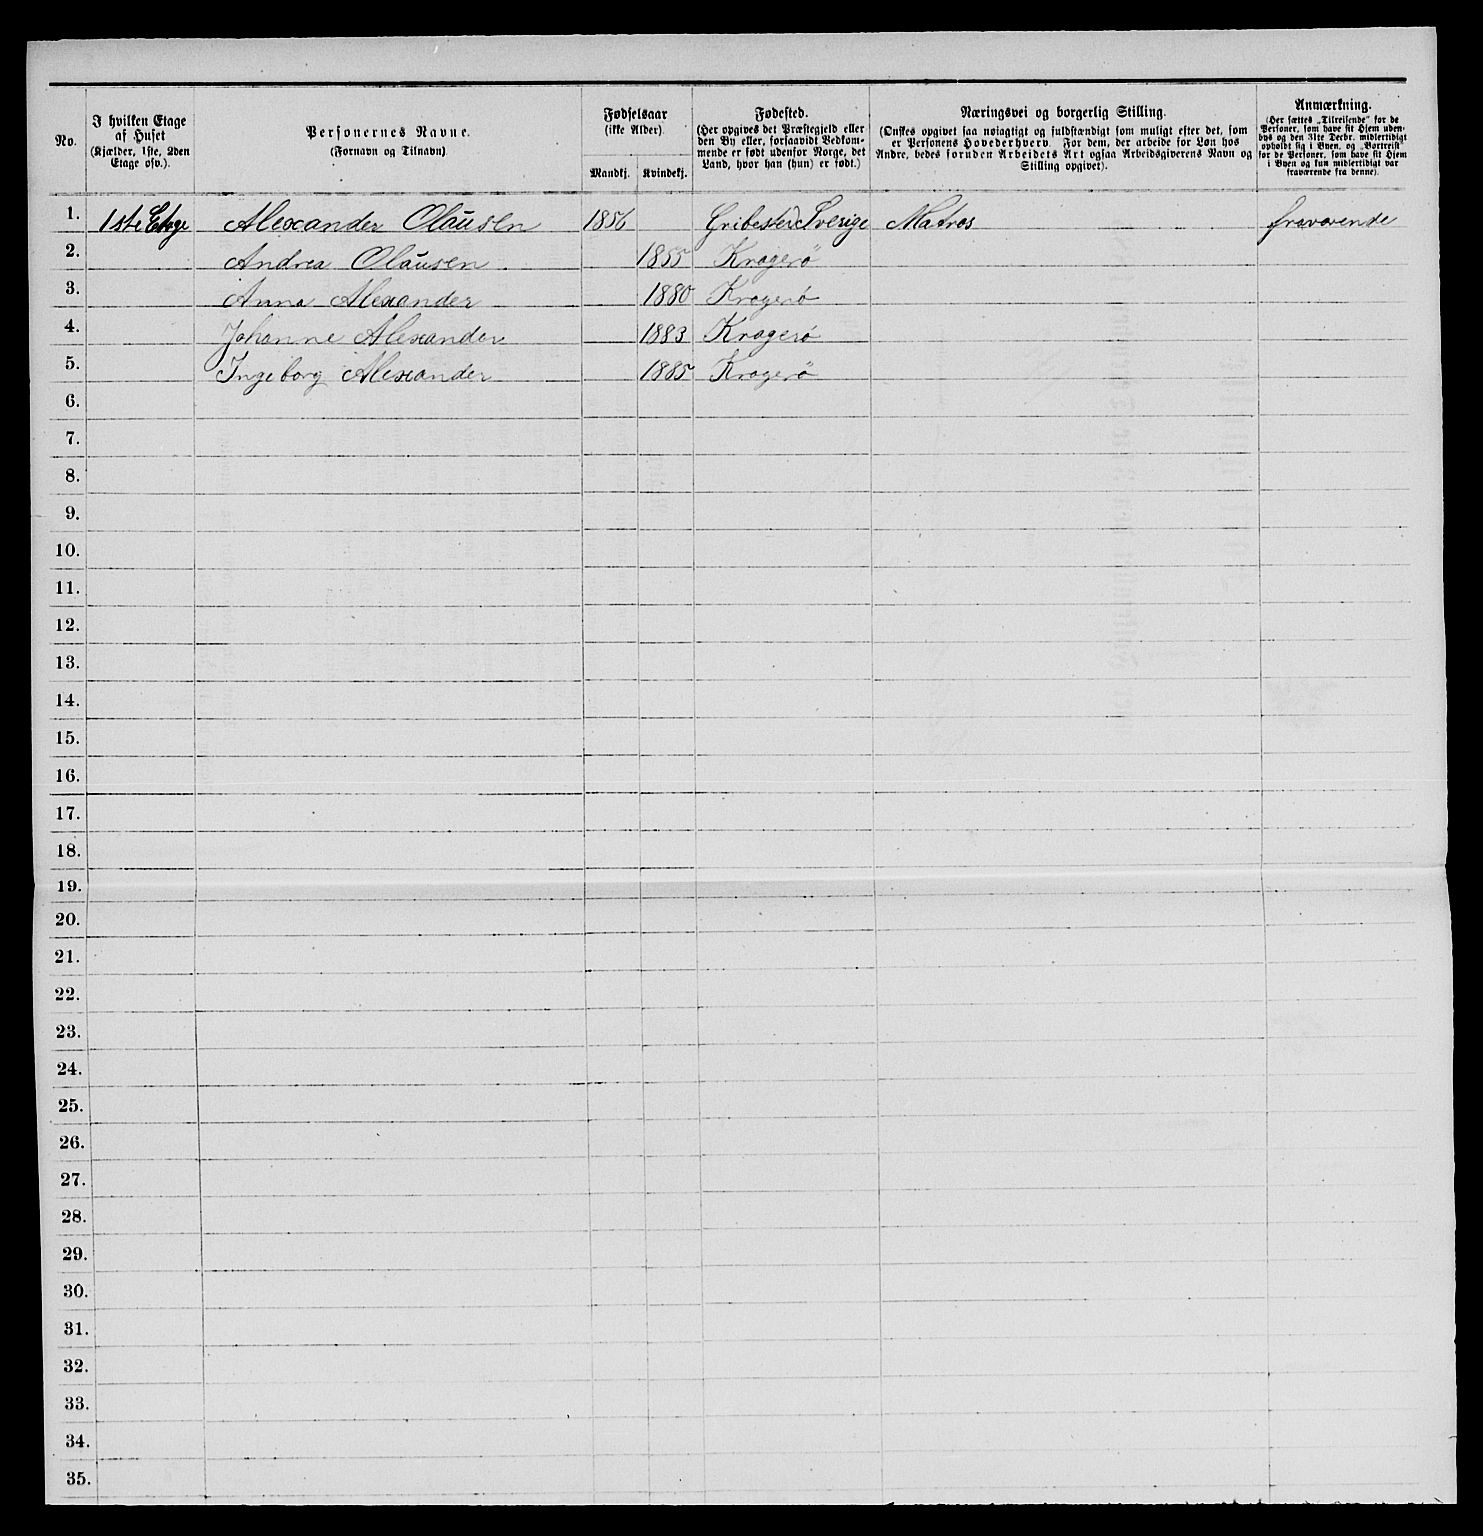 No.
I hvilken Etage af Huset (Kjælder, 1ste, 2den Etage osv.).
Personernes Navne. (Fornavn og Tilnavn)
Fødselsaar (ikke Alder).
Mandkj. Kvindekj.
Fødested. (Her opgives det Præstegjeld eller den By eller, forsaavidt Vedkommende er født udenfor Norge, det Land, hvor han (hun) er født.)
Næringsvei og borgerlig Stilling. (Ønskes opgivet saa nøiagtigt og fuldstændigt som muligt efter det, som er Personens Hovederhverv. For dem, der arbeide for Løn hos Andre, bedes foruden Arbeidets Art ogsaa Arbeidsgiverens Navn og Stilling opgivet).
Anmærkning. (Her sættes „Tilreisende" for de Personer, som have sit Hjem udenbys og den 31te Decbr. midlertidigt opholdt sig i Byen, og „Bortreist" for de Personer, som have sit Hjem i Byen og kun midlertidigt var fraværende fra denne).
1. 1ste Etage Alexander Olausen 1856 Sverige Matros fraværende
2. Andrea Olausen 1855 Kragerö
3. Anna Alexander 1880 Kragerö
4. Johanne Alexander 1883 Kragerö
5. Ingeborg Alexander 1885 Kragerö
6.
7.
8.
9.
10.
11.
12.
13.
14.
15.
16.
17.
18.
19.
20.
21.
22.
23.
24.
25.
26.
27.
28.
29.
30.
31.
32.
33.
34.
35.